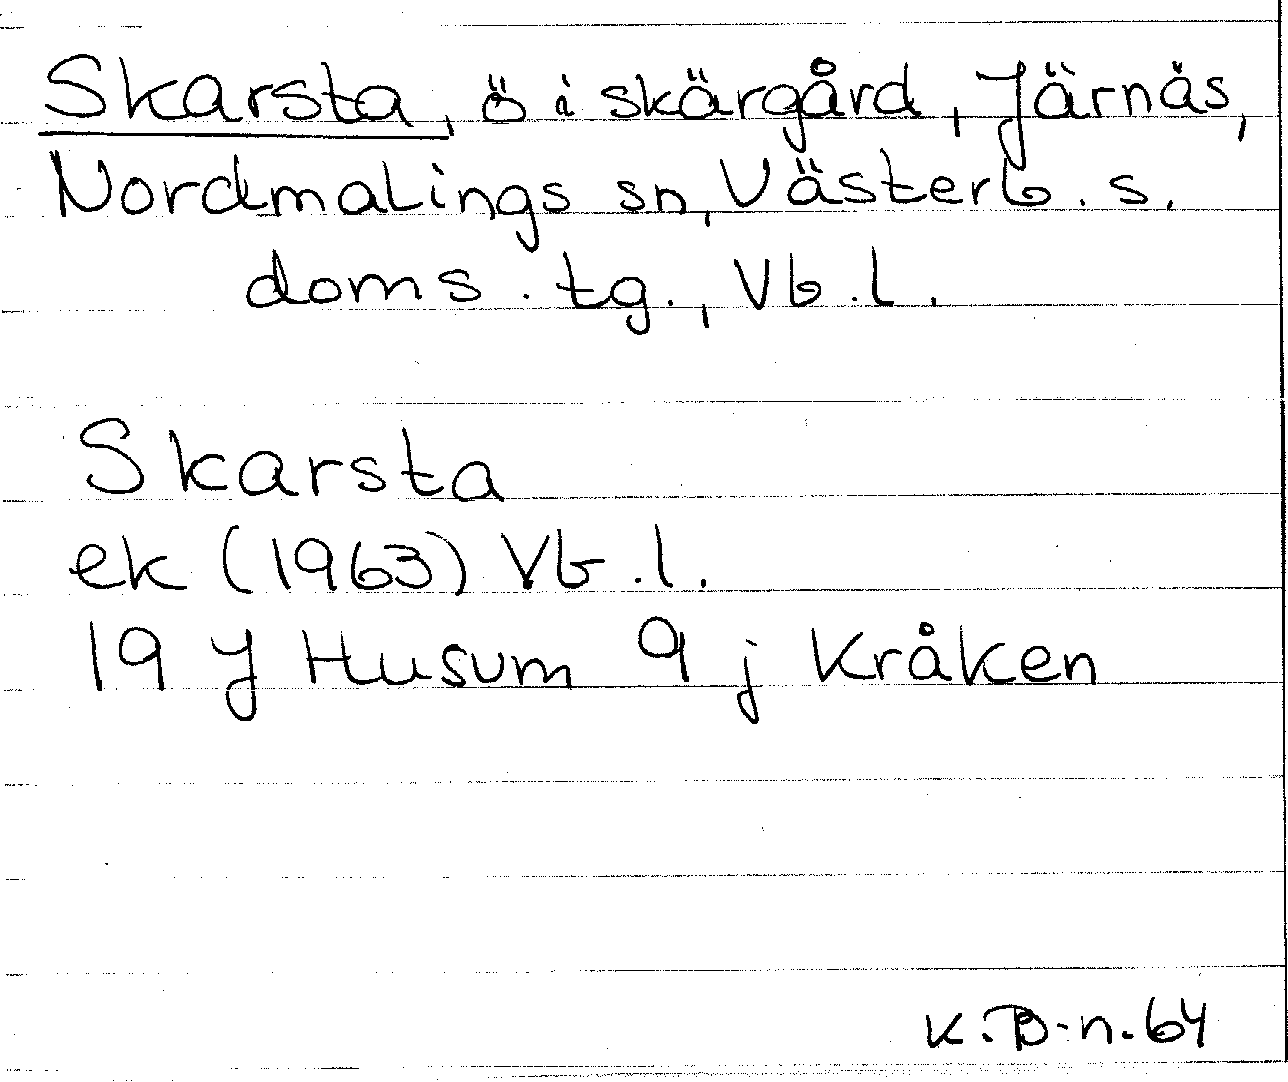 Skarsta, ö i skärgård, Järnäs,
Nordmalings sn, Västerb. s.
doms. tg., Vb.l.
Skarsta
ek (1963) Vb.l.
19 J Husum 9 j Kråken
K.B-n.64